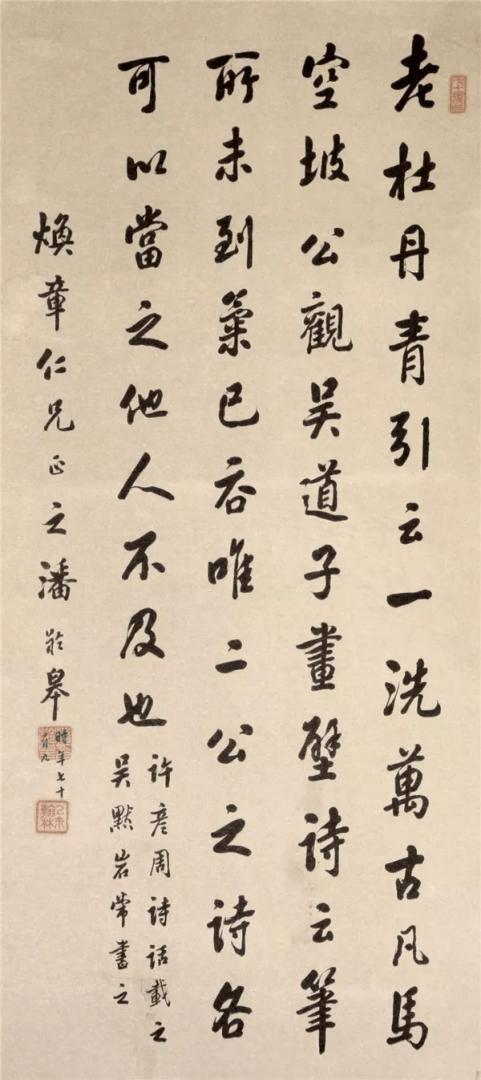 老杜丹青引云一洗萬古凡馬
空坡公觀吴道子畫壁詩云筆
所未到氣已吞唯二公之詩各
可以當之他人不及也
許彦周詩話載之
吴默岩常書之
煥章仁兄正之潘齡皋
時年七十
有九